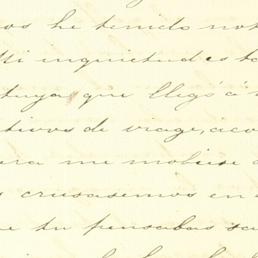 os he tenido not
Mi inquietud es ta
tuya, que llegó á
tivos de viage, aco
era me mobiese
s crusasemos en
e tu pensabas sa